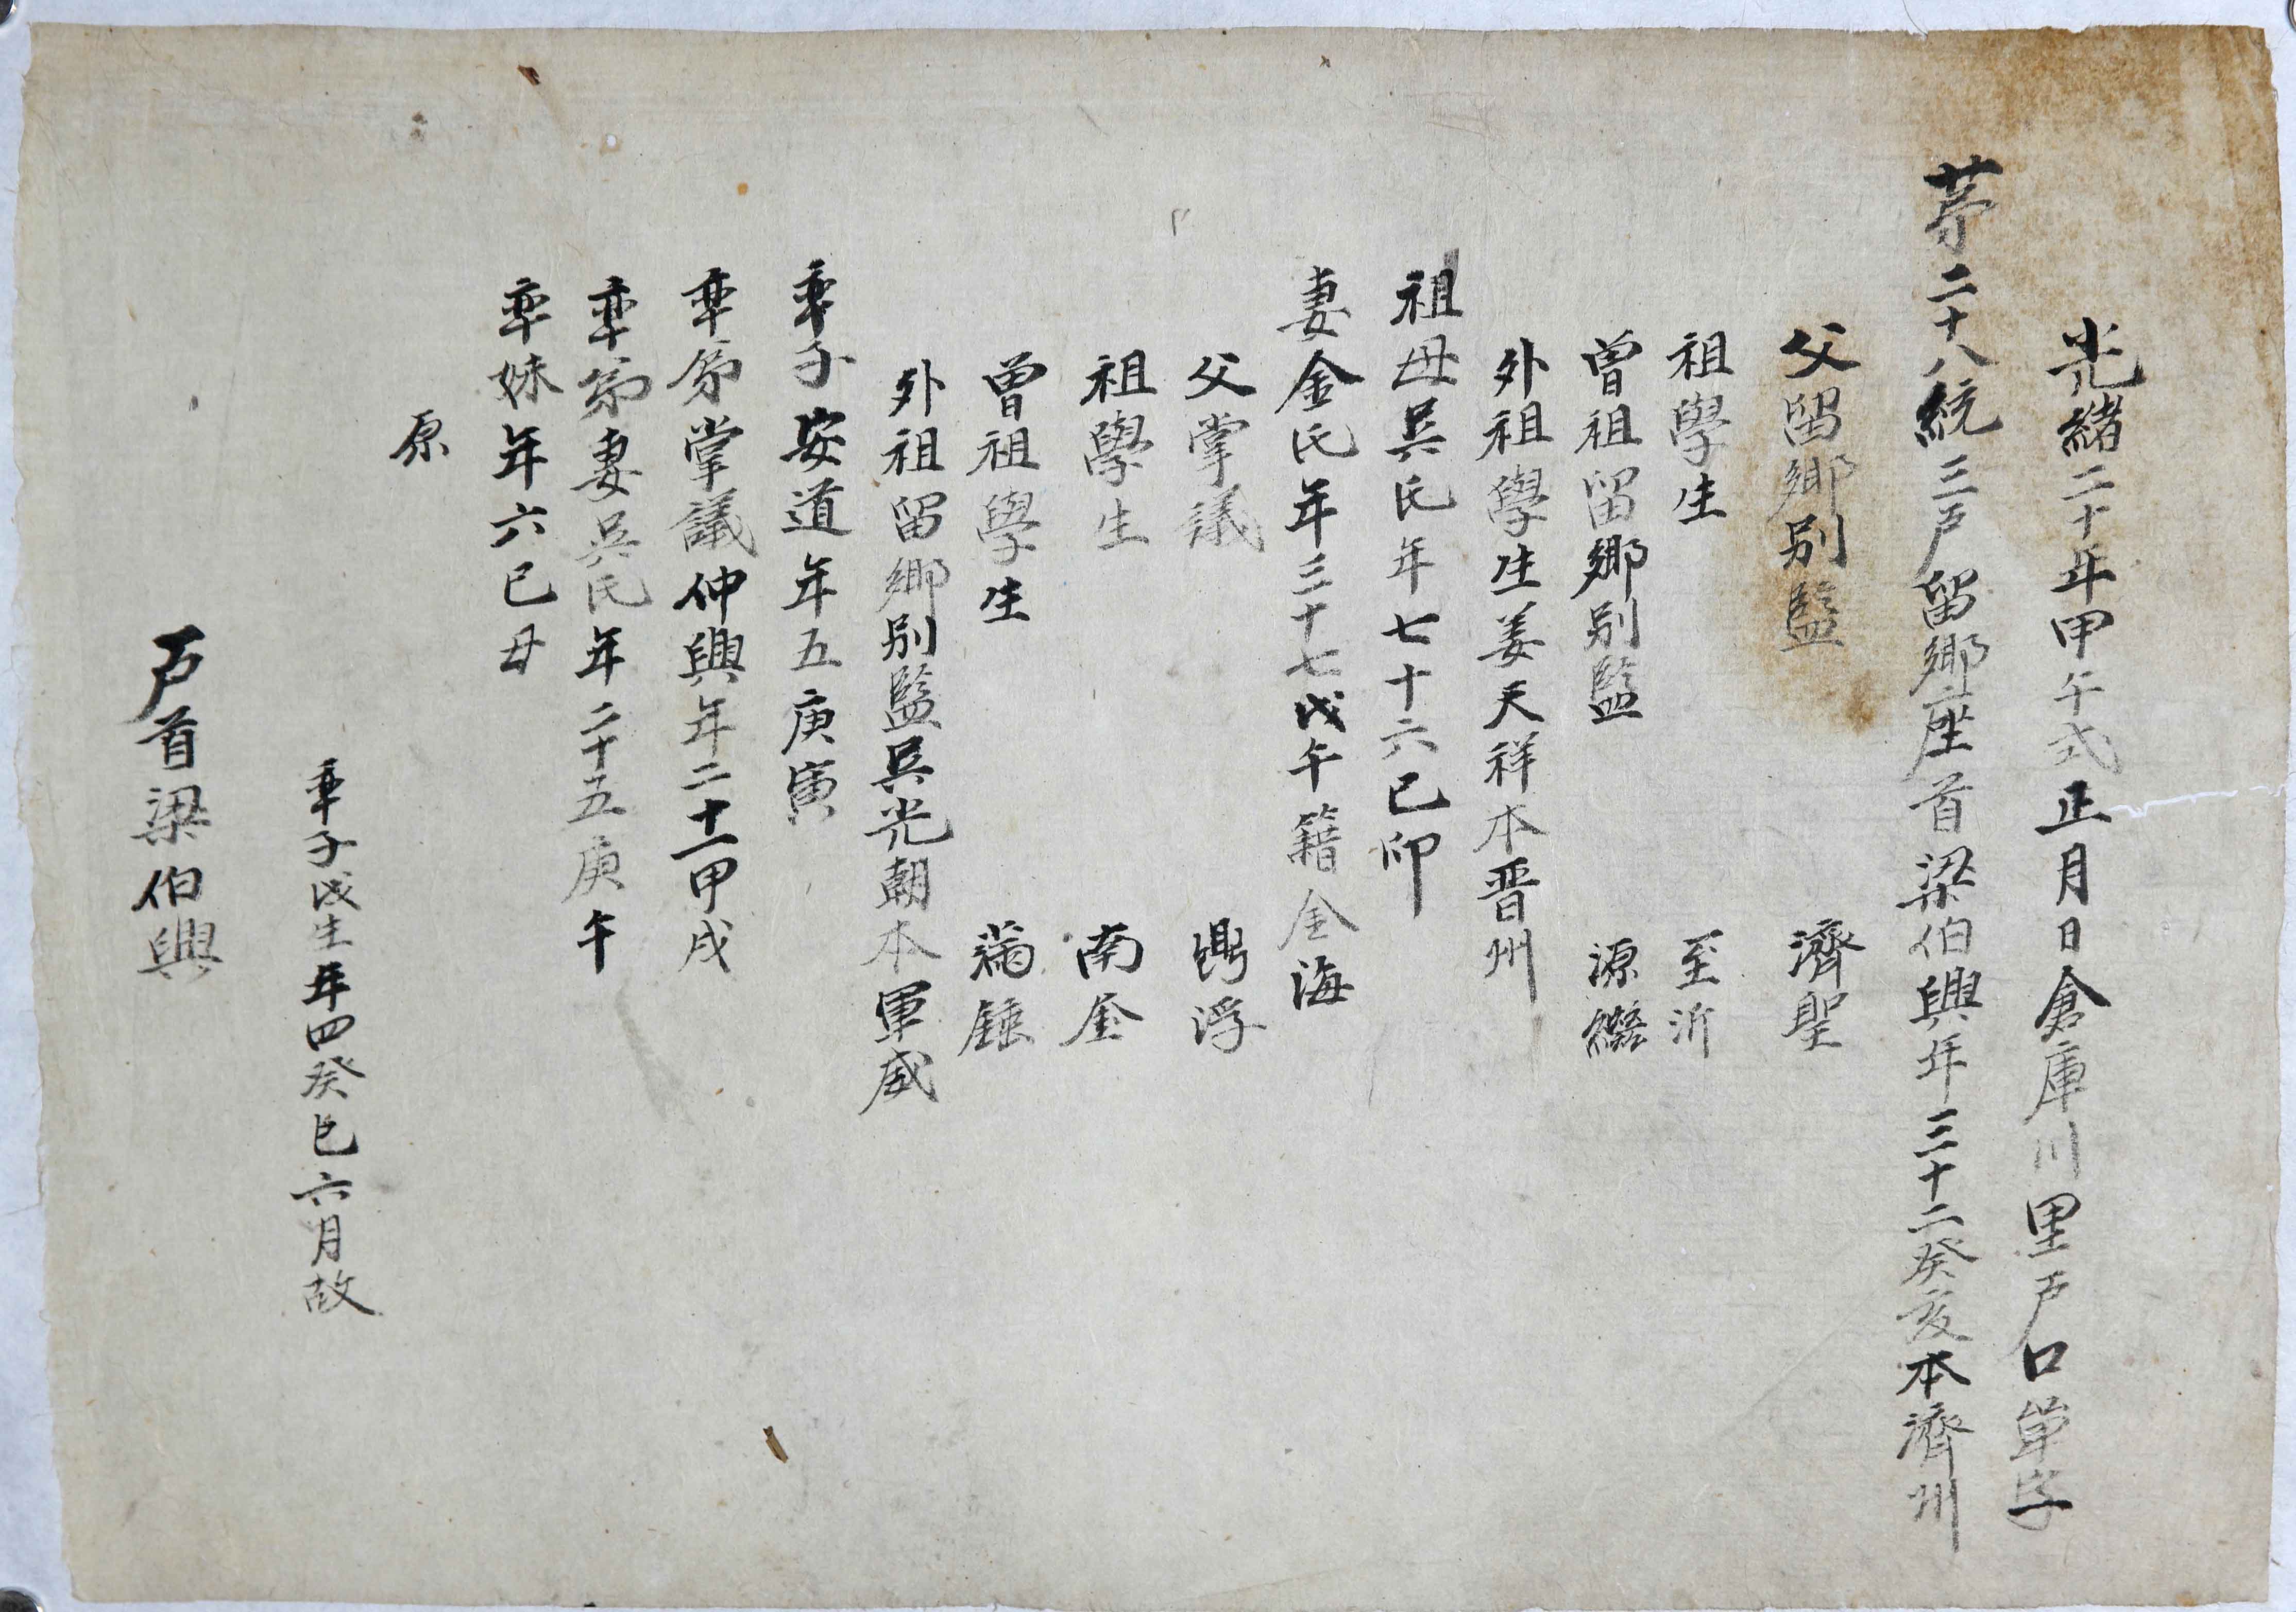 光緒二十年甲午式正月日倉庫川里戶口單子
苐二十八統三戶留鄕座首梁伯興年三十二癸亥本濟州
父留鄕別監 濟聖
祖學生 至沂
曾祖留鄕別監 源
外祖學生姜天祥本晋州
祖母吳氏年七十六己卯
妻金氏年三十七戊午籍金海
父掌議 浮
祖學生 南金
曾祖學生
外祖留鄕別監吳光朝本軍威
率子安道年五庚寅
率弟掌議仲興年二十一甲戌
率弟妻吳氏年二十五庚午
率妹年六己丑
原
率子戊生年四癸巳六月故
戶首梁伯興